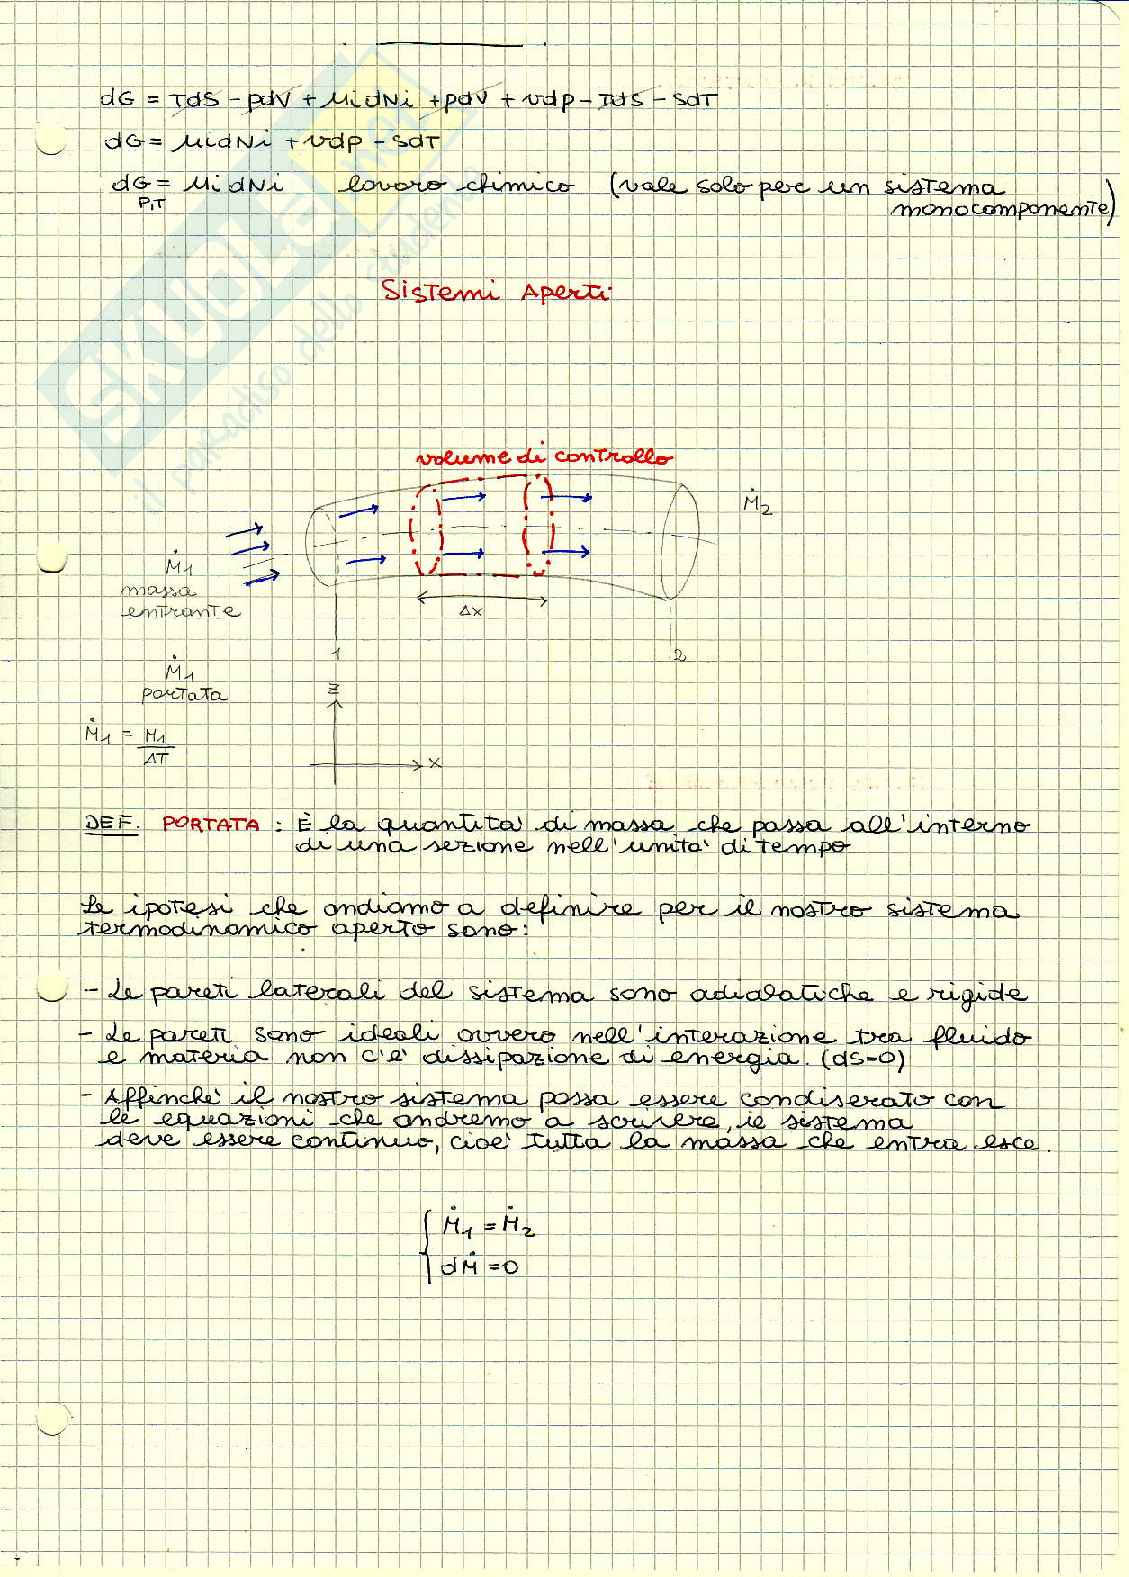 dG = TdS - pdV + μidNi + pdV + vdp - TdS - SdT
dG = μidNi + vdp - SdT
dG = μidNi lavoro chimico (vale solo per un sistema
P,T
monocomponente)
Sistemi Aperti
volume di controllo
Ṁ2
Ṁ1
massa
entrante
Δx
1
2
Ṁ1
portata
z
Ṁ1 = M1
ΔT
x
DEF. PORTATA : È la quantita' di massa che passa all'interno
di una sezione nell'unita' di tempo
Le ipotesi che andiamo a definire per il nostro sistema
termodinamico aperto sono:
- Le pareti laterali del sistema sono adiabatiche e rigide
- Le pareti sono ideali ovvero nell'interazione tra fluido
e materia non c'e' dissipazione di energia. (dS=0)
- Affinche' il nostro sistema possa essere condiserato con
le equazioni che andremo a scrivere, il sistema
deve essere continuo, cioe' tutta la massa che entra esce.
Ṁ1 = Ṁ2
dṀ = 0
SKUOLA.net
il paradiso dello studente